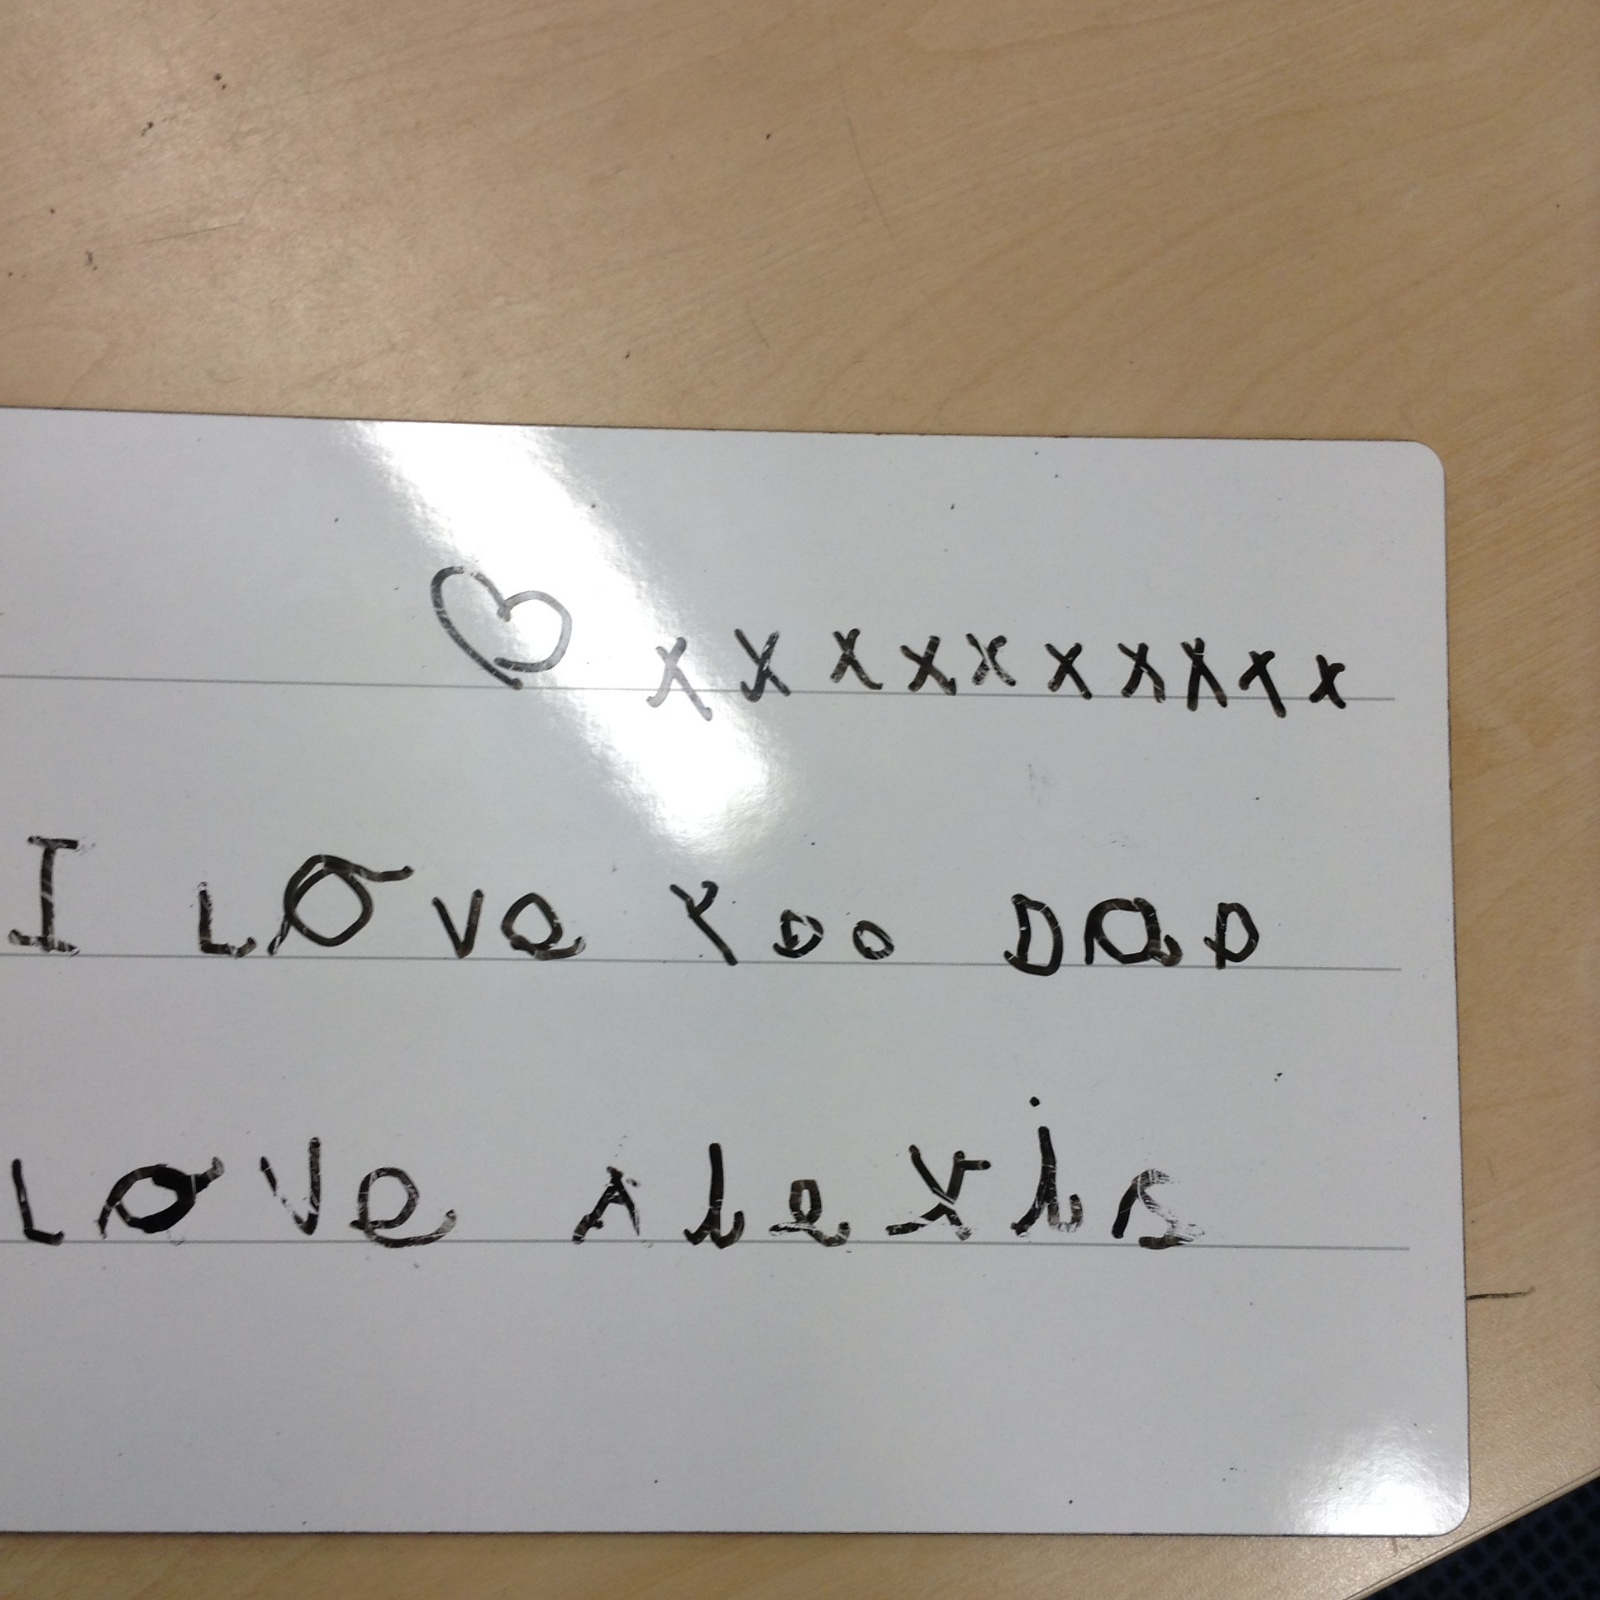 ♡ x x x x x x x x x x
I LOVe Yoo DaD
LOVe Alexis